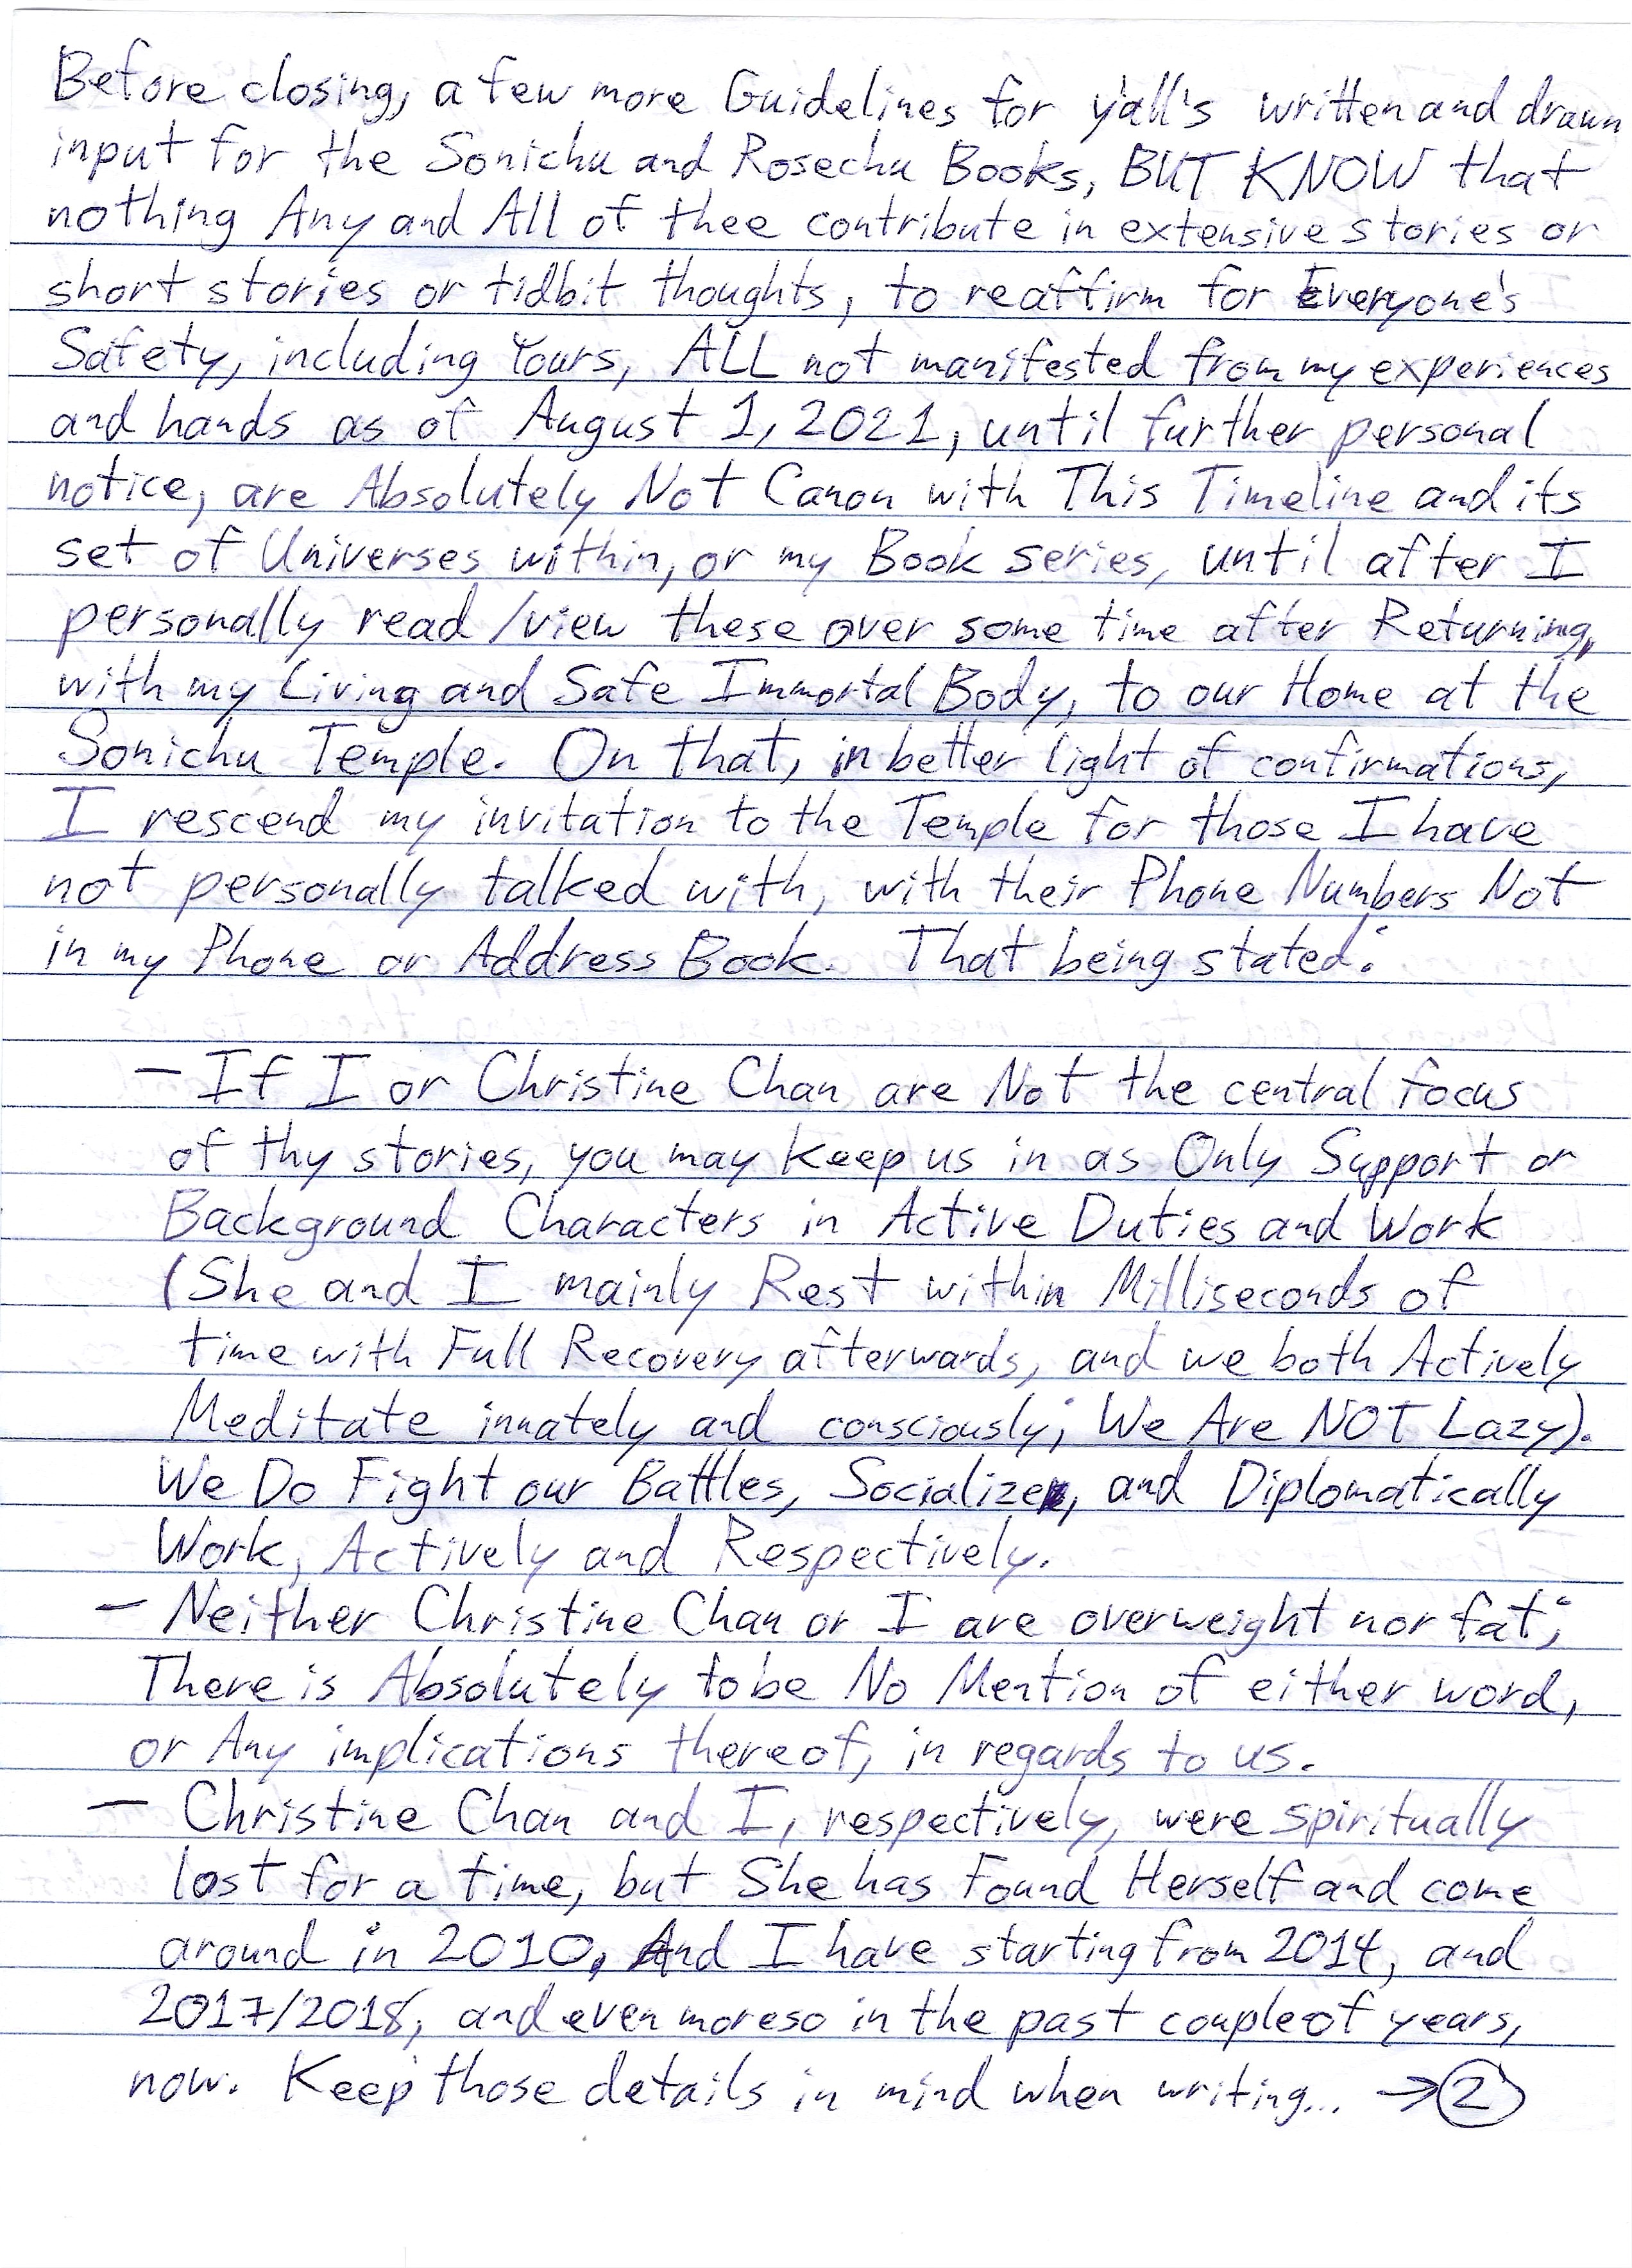 Before closing, a few more Guidelines for y'all's written and drawn
input for the Sonichu and Rosechu Books, BUT KNOW that
nothing Any and All of thee contribute in extensive stories or
short stories or tidbit thoughts, to reaffirm for Everyone's
Safety, including Yours, ALL not manifested from my experiences
and hands as of August 1, 2021, until further personal
notice, are Absolutely Not Canon with This Timeline and its
set of Universes within, or my Book series, until after I
personally read/view these over some time after Returning,
with my Living and Safe Immortal Body, to our Home at the
Sonichu Temple. On that, in better light of confirmations,
I rescend my invitation to the Temple for those I have
not personally talked with, with their Phone Numbers Not
in my Phone or Address Book. That being stated:
- If I or Christine Chan are Not the central focus
of thy stories, you may keep us in as Only Support or
Background Characters in Active Duties and Work
(She and I mainly Rest within Milliseconds of
time with Full Recovery afterwards, and we both Actively
Meditate innately and consciously; We Are NOT Lazy).
We Do Fight our Battles, Socialize, and Diplomatically
Work, Actively and Respectively.
- Neither Christine Chan or I are overweight nor fat;
There is Absolutely to be No Mention of either word,
or Any implications thereof, in regards to us.
- Christine Chan and I, respectively, were spiritually
lost for a time, but She has Found Herself and come
around in 2010, And I have starting from 2014, and
2017/2018, and even moreso in the past couple of years,
now. Keep those details in mind when writing... → 2